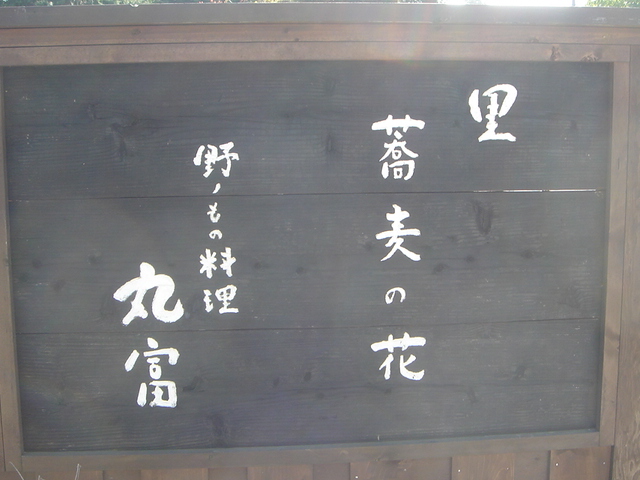 里
蕎麦の花
野ノもの料理
丸富